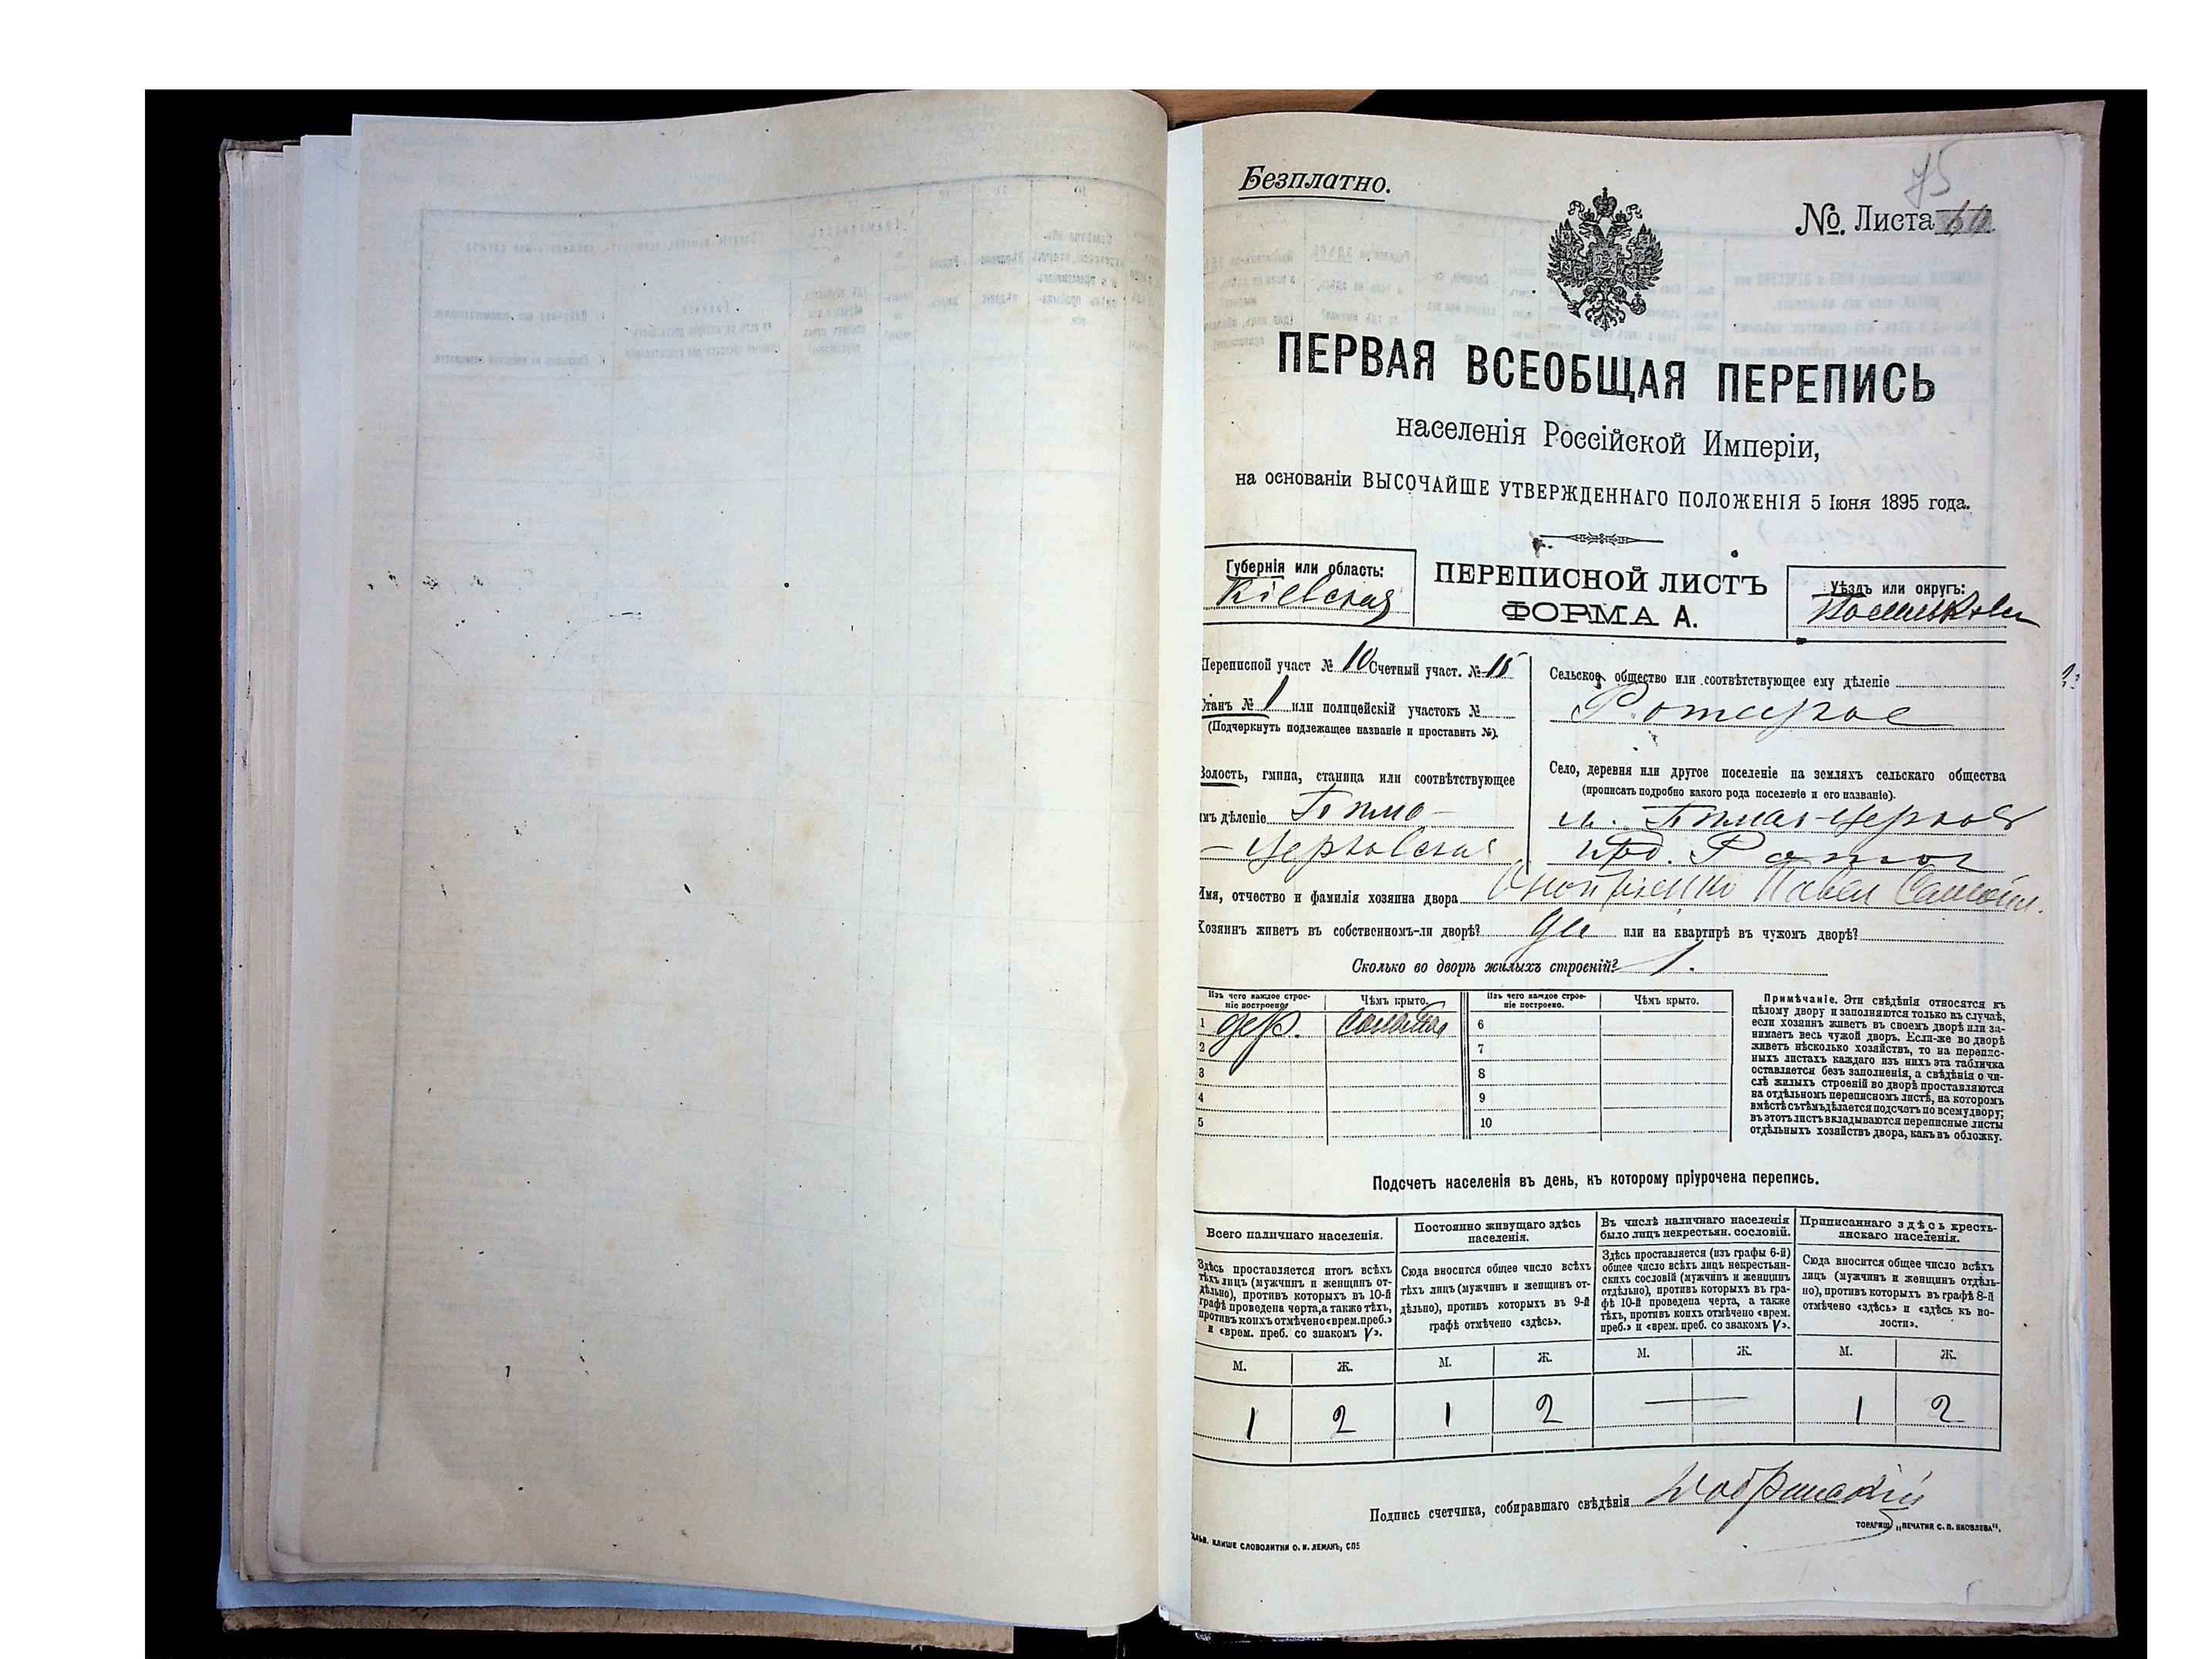 75
Безплатно.
№. Листа
ПЕРВАЯ ВСЕОБЩАЯ ПЕРЕПИСЬ
населенія Россійской Имперіи,
на основаніи ВЫСОЧАЙШЕ УТВЕРЖДЕННАГО ПОЛОЖЕНІЯ 5 Іюня 1895 года.
Губернія или область:
Кіевская
ПЕРЕПИСНОЙ ЛИСТЪ
ФОРМА А.
Уѣздъ или округъ:
Переписной участ № 10 Счетный участ. № 15
Станъ № 1 или полицейскій участокъ №
(Подчеркнуть подлежащее названіе и проставить №).
Сельское общество или соотвѣтствующее ему дѣленіе
Роткское
Волость, гмина, станица или соотвѣтствующее
имъ дѣленіе Бѣло-
-Церковская
Село, деревня или другое поселеніе на земляхъ сельскаго общества
(прописать подробно какого рода поселеніе и его названіе).
м. Бѣлая-Церковь
пред. Роток
Имя, отчество и фамилія хозяина двора Онопріенко Павел Самойл.
Хозяинъ живетъ въ собственномъ-ли дворѣ? да или на квартирѣ въ чужомъ дворѣ?
Сколько во дворѣ жилыхъ строеній? 1.
Изъ чего каждое строеніе построено. Чѣмъ крыто. Изъ чего каждое строеніе построено. Чѣмъ крыто.
1 дер. солома 6
2 7
3 8
4 9
5 10
Примѣчаніе. Эти свѣдѣнія относятся къ
цѣлому двору и заполняются только въ случаѣ,
если хозяинъ живетъ въ своемъ дворѣ или за-
нимаетъ весь чужой дворъ. Если-же во дворѣ
живетъ нѣсколько хозяйствъ, то на перепис-
ныхъ листахъ каждаго изъ нихъ эта табличка
оставляется безъ заполненія, а свѣдѣнія о чи-
слѣ жилыхъ строеній во дворѣ проставляются
на отдѣльномъ переписномъ листѣ, на которомъ
вмѣстѣ съ тѣмъ дѣлается подсчетъ по всему двору;
въ этотъ листъ вкладываются переписные листы
отдѣльныхъ хозяйствъ двора, какъ въ обложку.
Подсчетъ населенія въ день, къ которому пріурочена перепись.
Всего наличнаго населенія.
Здѣсь проставляется итогъ всѣхъ
тѣхъ лицъ (мужчинъ и женщинъ от-
дѣльно), противъ которыхъ въ 10-й
графѣ проведена черта, а также тѣхъ,
противъ коихъ отмѣчено «врем. преб.»
и «врем. преб. со знакомъ V».
Постоянно живущаго здѣсь
населенія.
Сюда вносится общее число всѣхъ
тѣхъ лицъ (мужчинъ и женщинъ от-
дѣльно), противъ которыхъ въ 9-й
графѣ отмѣчено «здѣсь».
Въ числѣ наличнаго населенія
было лицъ некрестьян. сословій.
Здѣсь проставляется (изъ графы 6-й)
общее число всѣхъ лицъ некрестьян-
скихъ сословій (мужчинъ и женщинъ
отдѣльно), противъ которыхъ въ гра-
фѣ 10-й проведена черта, а также
тѣхъ, противъ коихъ отмѣчено «врем.
преб.» и «врем. преб. со знакомъ V».
Приписаннаго здѣсь кресть-
янскаго населенія.
Сюда вносится общее число всѣхъ
лицъ (мужчинъ и женщинъ отдѣль-
но), противъ которыхъ въ графѣ 8-й
отмѣчено «здѣсь» и «здѣсь къ во-
лости».
М. Ж. М. Ж. М. Ж. М. Ж.
1 2 1 2 — 1 2
Подпись счетчика, собиравшаго свѣдѣнія
ТОВАРИЩ. „ПЕЧАТНЯ С. П. ЯКОВЛЕВА“.
КЛИШЕ СЛОВОЛИТНИ О. И. ЛЕМАНЪ, СПБ